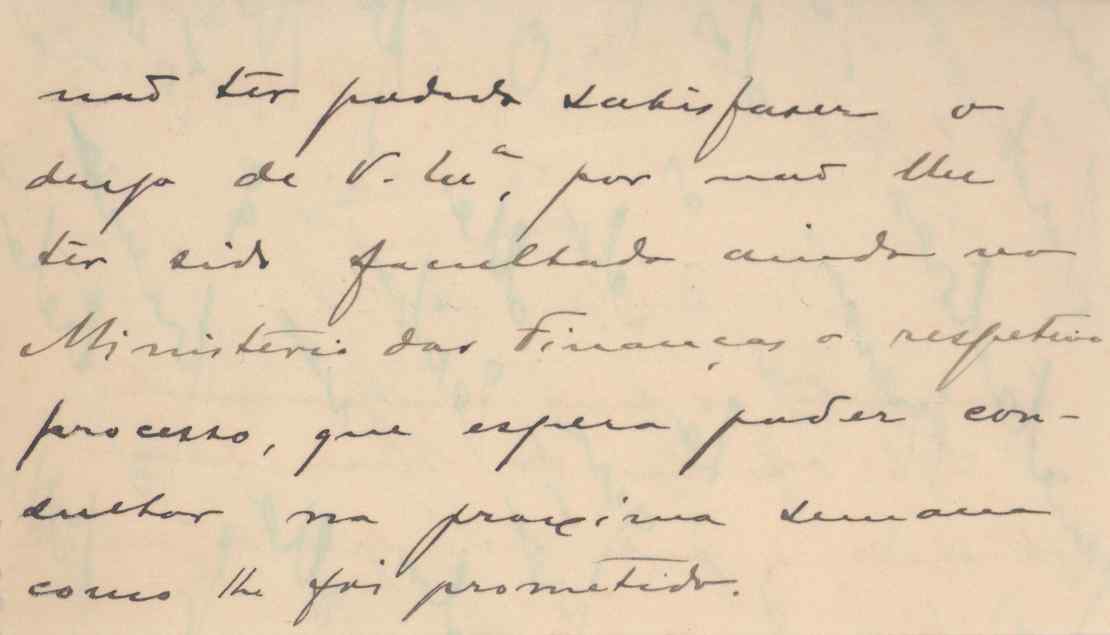 não ter podido satisfazer o
desejo de V. Exª, por não lhe
ter sido facultado ainda no
Ministerio das Finanças o respetivo
processo, que espera poder con-
sultar na proxima semana
como lhe foi prometido.